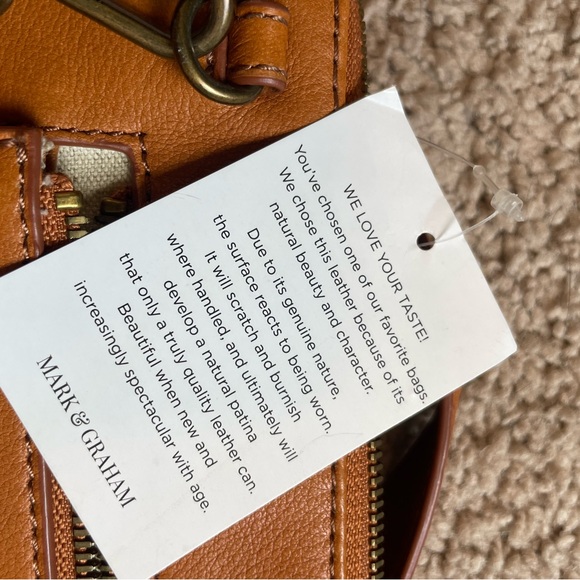 WE LOVE YOUR TASTE!
You've chosen one of our favorite bags.
We chose this leather because of its
natural beauty and character.
Due to its genuine nature,
the surface reacts to being worn.
It will scratch and burnish
where handled, and ultimately will
develop a natural patina
that only a truly quality leather can.
Beautiful when new and
increasingly spectacular with age.
MARK & GRAHAM